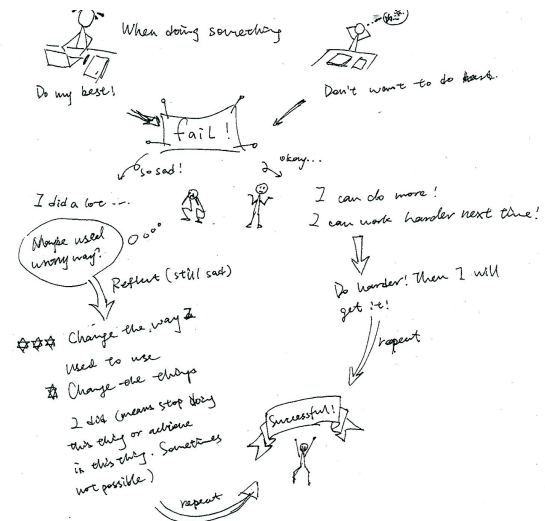 When doing something
Do my best!
Don't want to do
fail!
so sad!
okay...
I did a lot ...
Maybe used
wrong way?
Reflect (still sad)
☆☆☆ Change the way I
used to use
☆ Change the things
I did (means stop doing
this thing or achieve
in this thing. Sometimes
not possible)
repeat
I can do more!
I can work harder next time!
Do harder! Then I will
get it!
repeat
Successful!